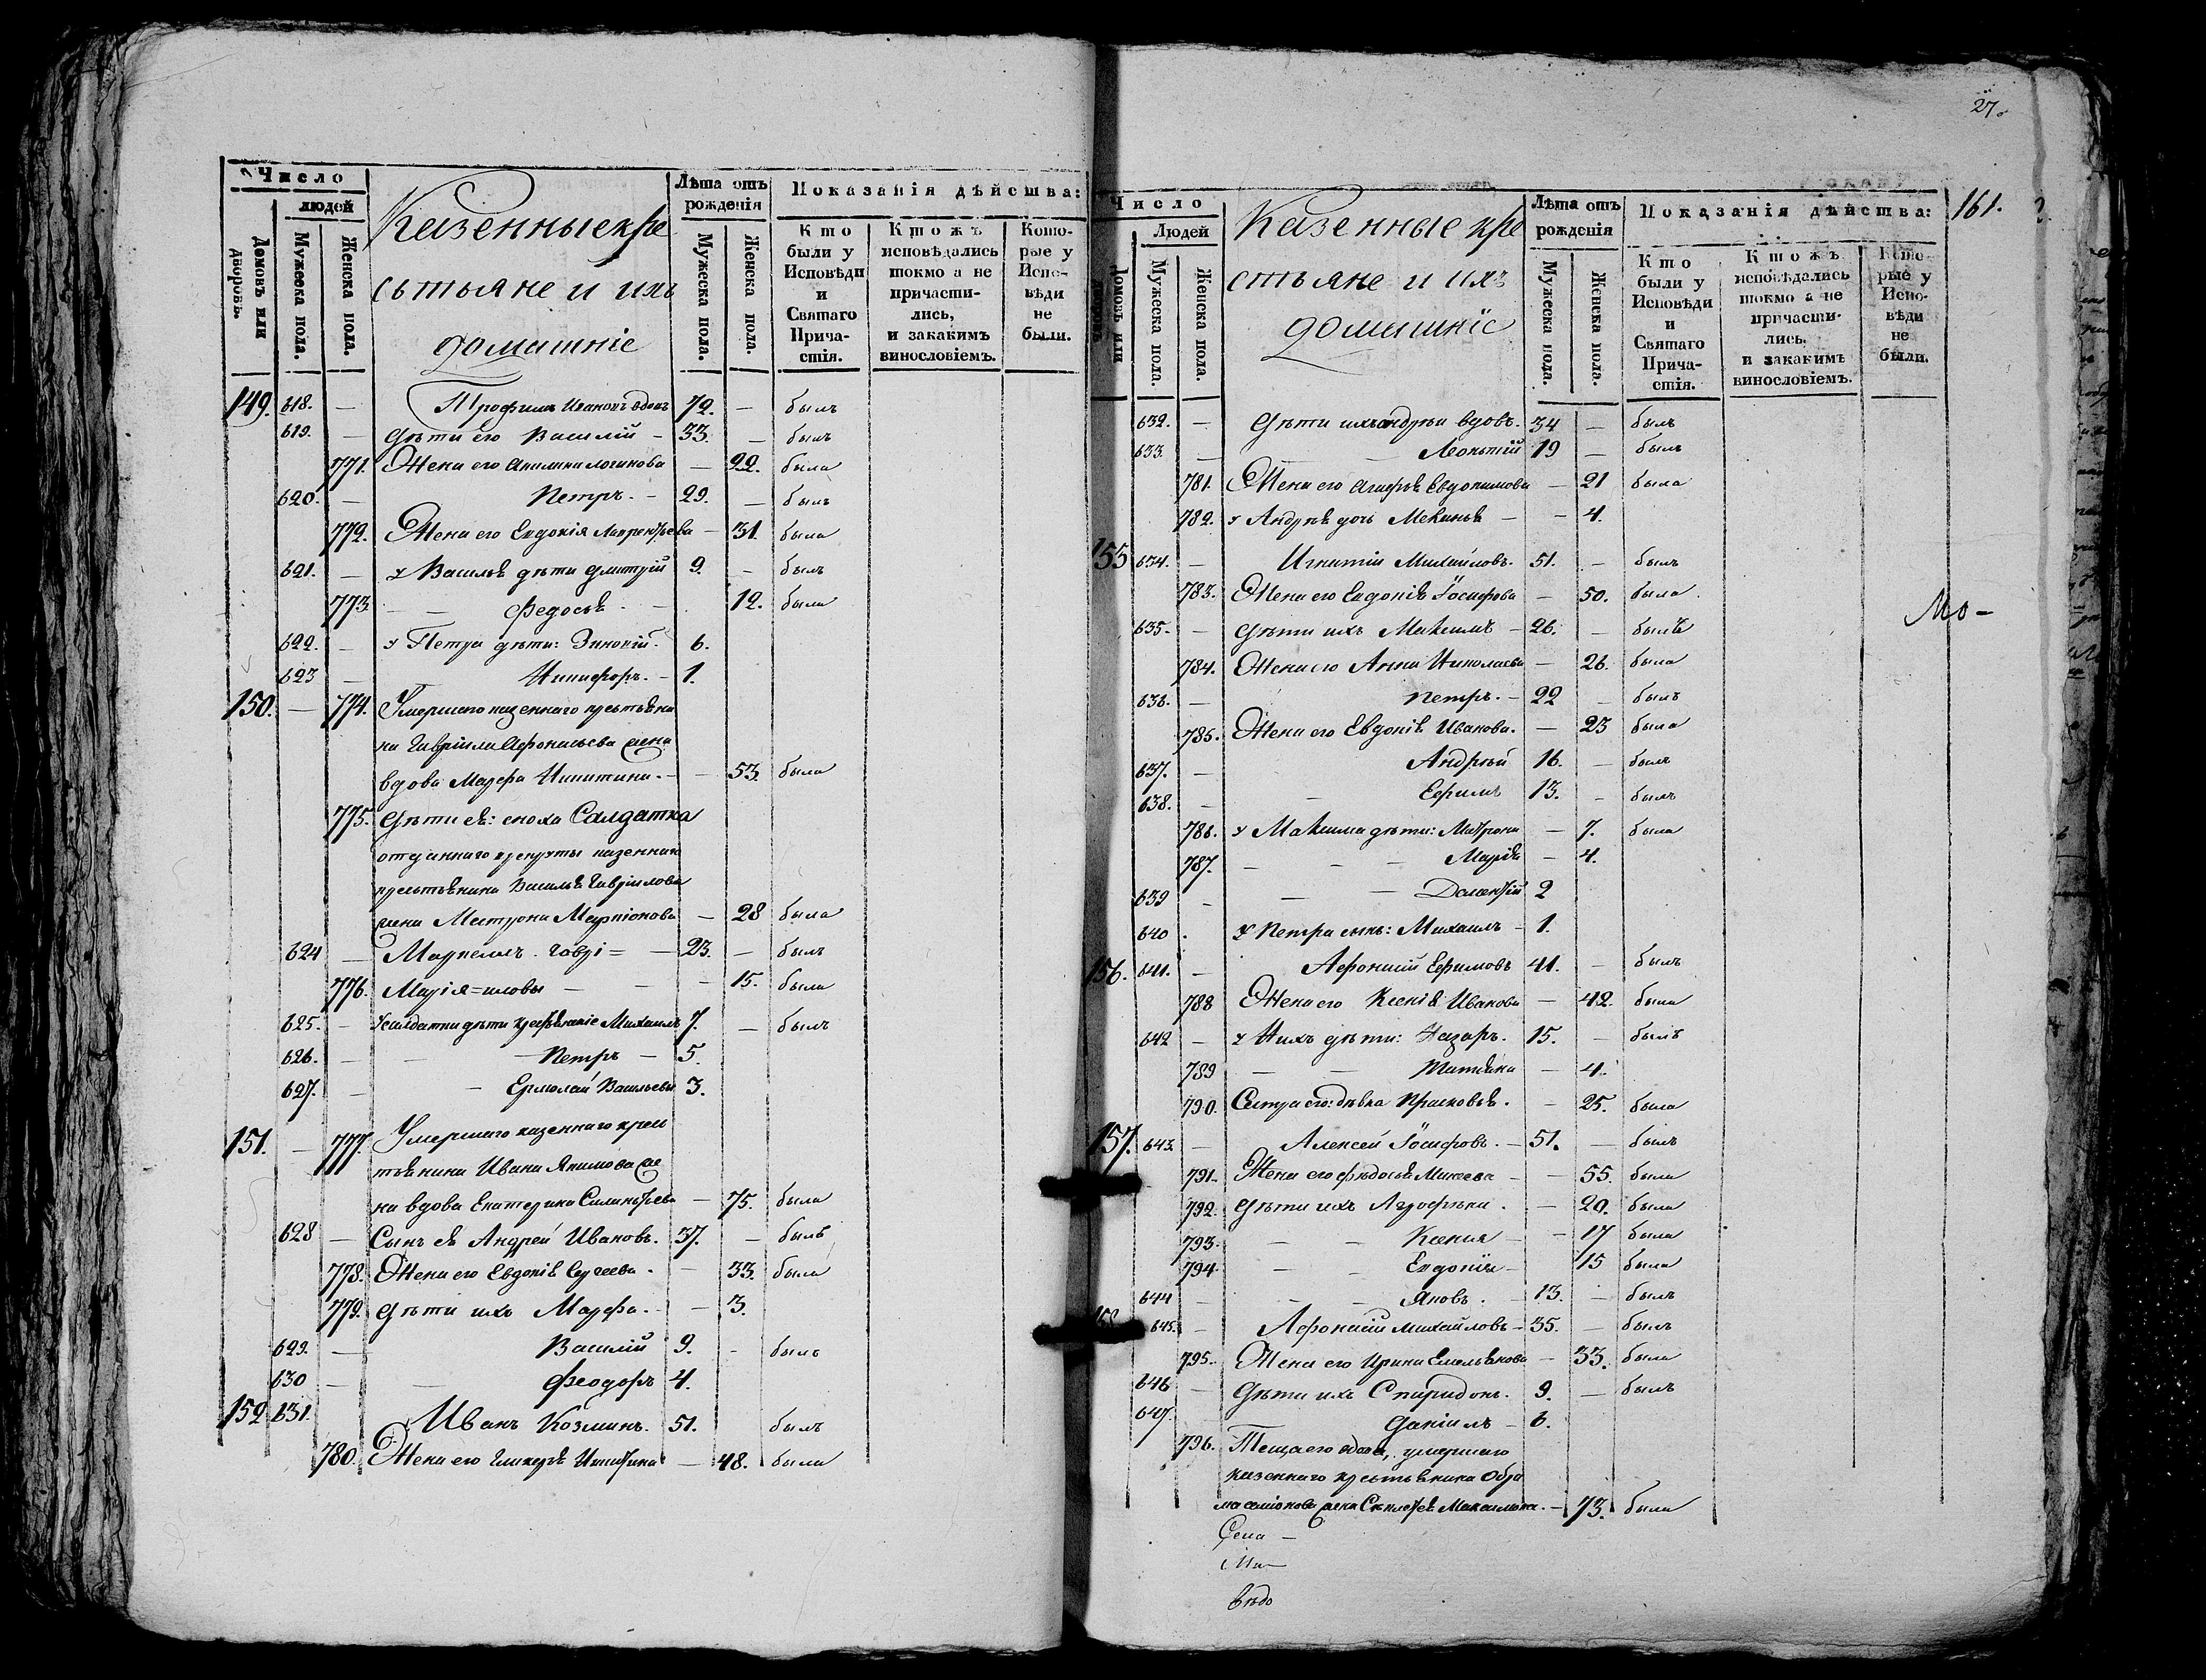 Число
людей
Домовъ или дворовъ.
Мужеска пола.
Женска пола.
Казенные кре
стьяне и ихъ
домашніе
Лѣта отъ рожденія
Мужеска пола.
Женска пола.
Показанія дѣйства:
Кто были у Исповѣди и Святаго Причастія.
Ктожъ исповѣдались токмо а не причастились, и закакимъ винословіемъ.
Которые у Исповѣди не были.
149. 618. — Трофимъ Ивановъ вдовъ 72. — былъ
619. — Дѣти его Василій — 33. — былъ
771. Жена его Акилина Логинова — 22. была
620. — Петръ. — 29. — былъ
772. Жена его Евдокія Лаврентьева — 31. была
621. — у Василья дѣти Дмитрій 9. — былъ
773 — Федосья — 12. была
622. — у Петра дѣти: 6.
623 — Никифоръ. — 1.
150. — 774. Умершаго казеннаго крестьяни
на Гавріила Афонасьева жена
вдова Марфа Никитина. — 53. была
775. Дѣти ея: сноха Салдатка
отданнаго в рекруты казеннаго
крестьянина Василья Гаврилова
жена Матрона — 28 была
624 — Маркеллъ. Гаврі= — 23. — былъ
776. Марія =иловы — 15. была
625. — у салдатки дѣти Михаилъ 7. — былъ
626. — Петръ — 5.
627. — Ермолай Васильевы 3.
151. — 777. Умершаго казеннаго крес
тьянина Ивана Якимова же
на вдова Екатерина Силантьева — 75. была
628 — Сынъ ея Андрей Ивановъ. 37. — былъ
778. Жена его Евдокія Сергеева. — 33. была
779. Дѣти ихъ Марфа. — 3.
629. — Василій 9. — былъ
630 — Феодоръ 4.
152 631. Иванъ Козминъ. 51. былъ
780. Жена его Гликерья Никитина — 48. была
27.
161.
Число
Людей
Домовъ или дворовъ
Мужеска пола.
Женска пола.
Казенные кре
стьяне и ихъ
домашніе
Лѣта отъ рожденія
Мужеска пола.
Женска пола.
Показанія дѣйства:
Кто были у Исповѣди и Святаго Причастія.
Ктожъ исповѣдались токмо а не причастились. и закакимъ винословіемъ.
Которые у Исповѣди не были.
632. — Дѣти ихъ Андрей вдовъ. 34 — былъ
633. — Леонтій 19 — былъ
781. Жена его Агафья Евдокимова — 21 была
782. у Андрея дочь — 4.
155 634. — Игнатій Михайловъ. 51. — былъ
783. Жена его Евдокія Іосифова — 50. была.
635. — Дѣти ихъ Максимъ — 26. — былъ
784. Жена его Анна Николаева — 26. была
636. — Петръ. — 22 — былъ
785. Жена его Евдокія Иванова. — 23 была
637. — Андрей 16. — былъ
638. — Ефимъ 13. — былъ
786. у Максима дѣти: Матрона — 7. была
787. — Марія — 4.
639 — 2
640 . у Петра сынъ: Михаилъ — 1.
156. 641. — Афонасій Ефимовъ 41. — былъ
788 Жена его Ксенія Иванова — 42. была
642 — у Нихъ дѣти: Назаръ. 15. — былъ
789 — Татьяна — 4.
790. Сестра его: дѣвка Прасковья. — 25. была
157. 643. — Алексей Іосифовъ. — 51. — былъ
791. Жена его Федосья Микеева — 55. была
792. Дѣти ихъ Аграфена. — 20. была
793. — Ксения — 17 была
794 — Евдокія — 15 была
644 — Яковъ. — 13. — былъ
158 645. — Афонасій Михайловъ — 35. — былъ
795. Жена его Ирина Емельянова — 33. была
646 — Дѣти ихъ Спиридонъ. 9. — былъ
647. Даніилъ — 6.
796. Теща его вдова, умершаго
казеннаго крестьянина
жена Максимова. — 73. была
Мо-
Села —
Ми—
вѣдо